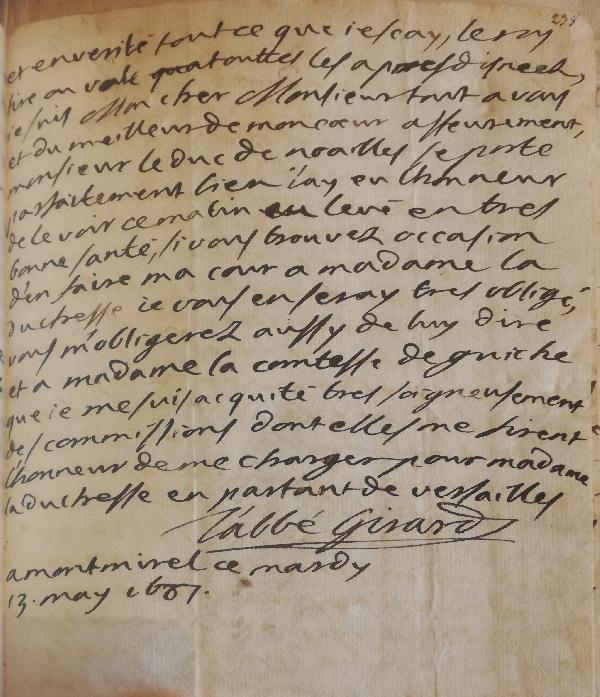 239
et en verité tout ce que ie scay, le roy
tire au vol quatoutes les apresdisnees,
ie suis Mon cher Monsieur tout a vous
et du meilleur de mon cœur asseurement,
monsieur le duc de noailles se porte
parfaitement bien i'ay eu lhonneur
de le voir ce matin au levé en tres
bonne santé, si vous trouvez occasion
d'en faire ma cour a madame la
duchesse ie vous en seray tres obligé,
vous m'obligerez aussy de luy dire
et a madame la comtesse de guiche
que ie me suis acquité tres soigneusement
des commissions dont elles me firent
lhonneur de me charger pour madame
la duchesse en partant de versailles
l'abbé Girard
a montmirel ce mardy
13. may